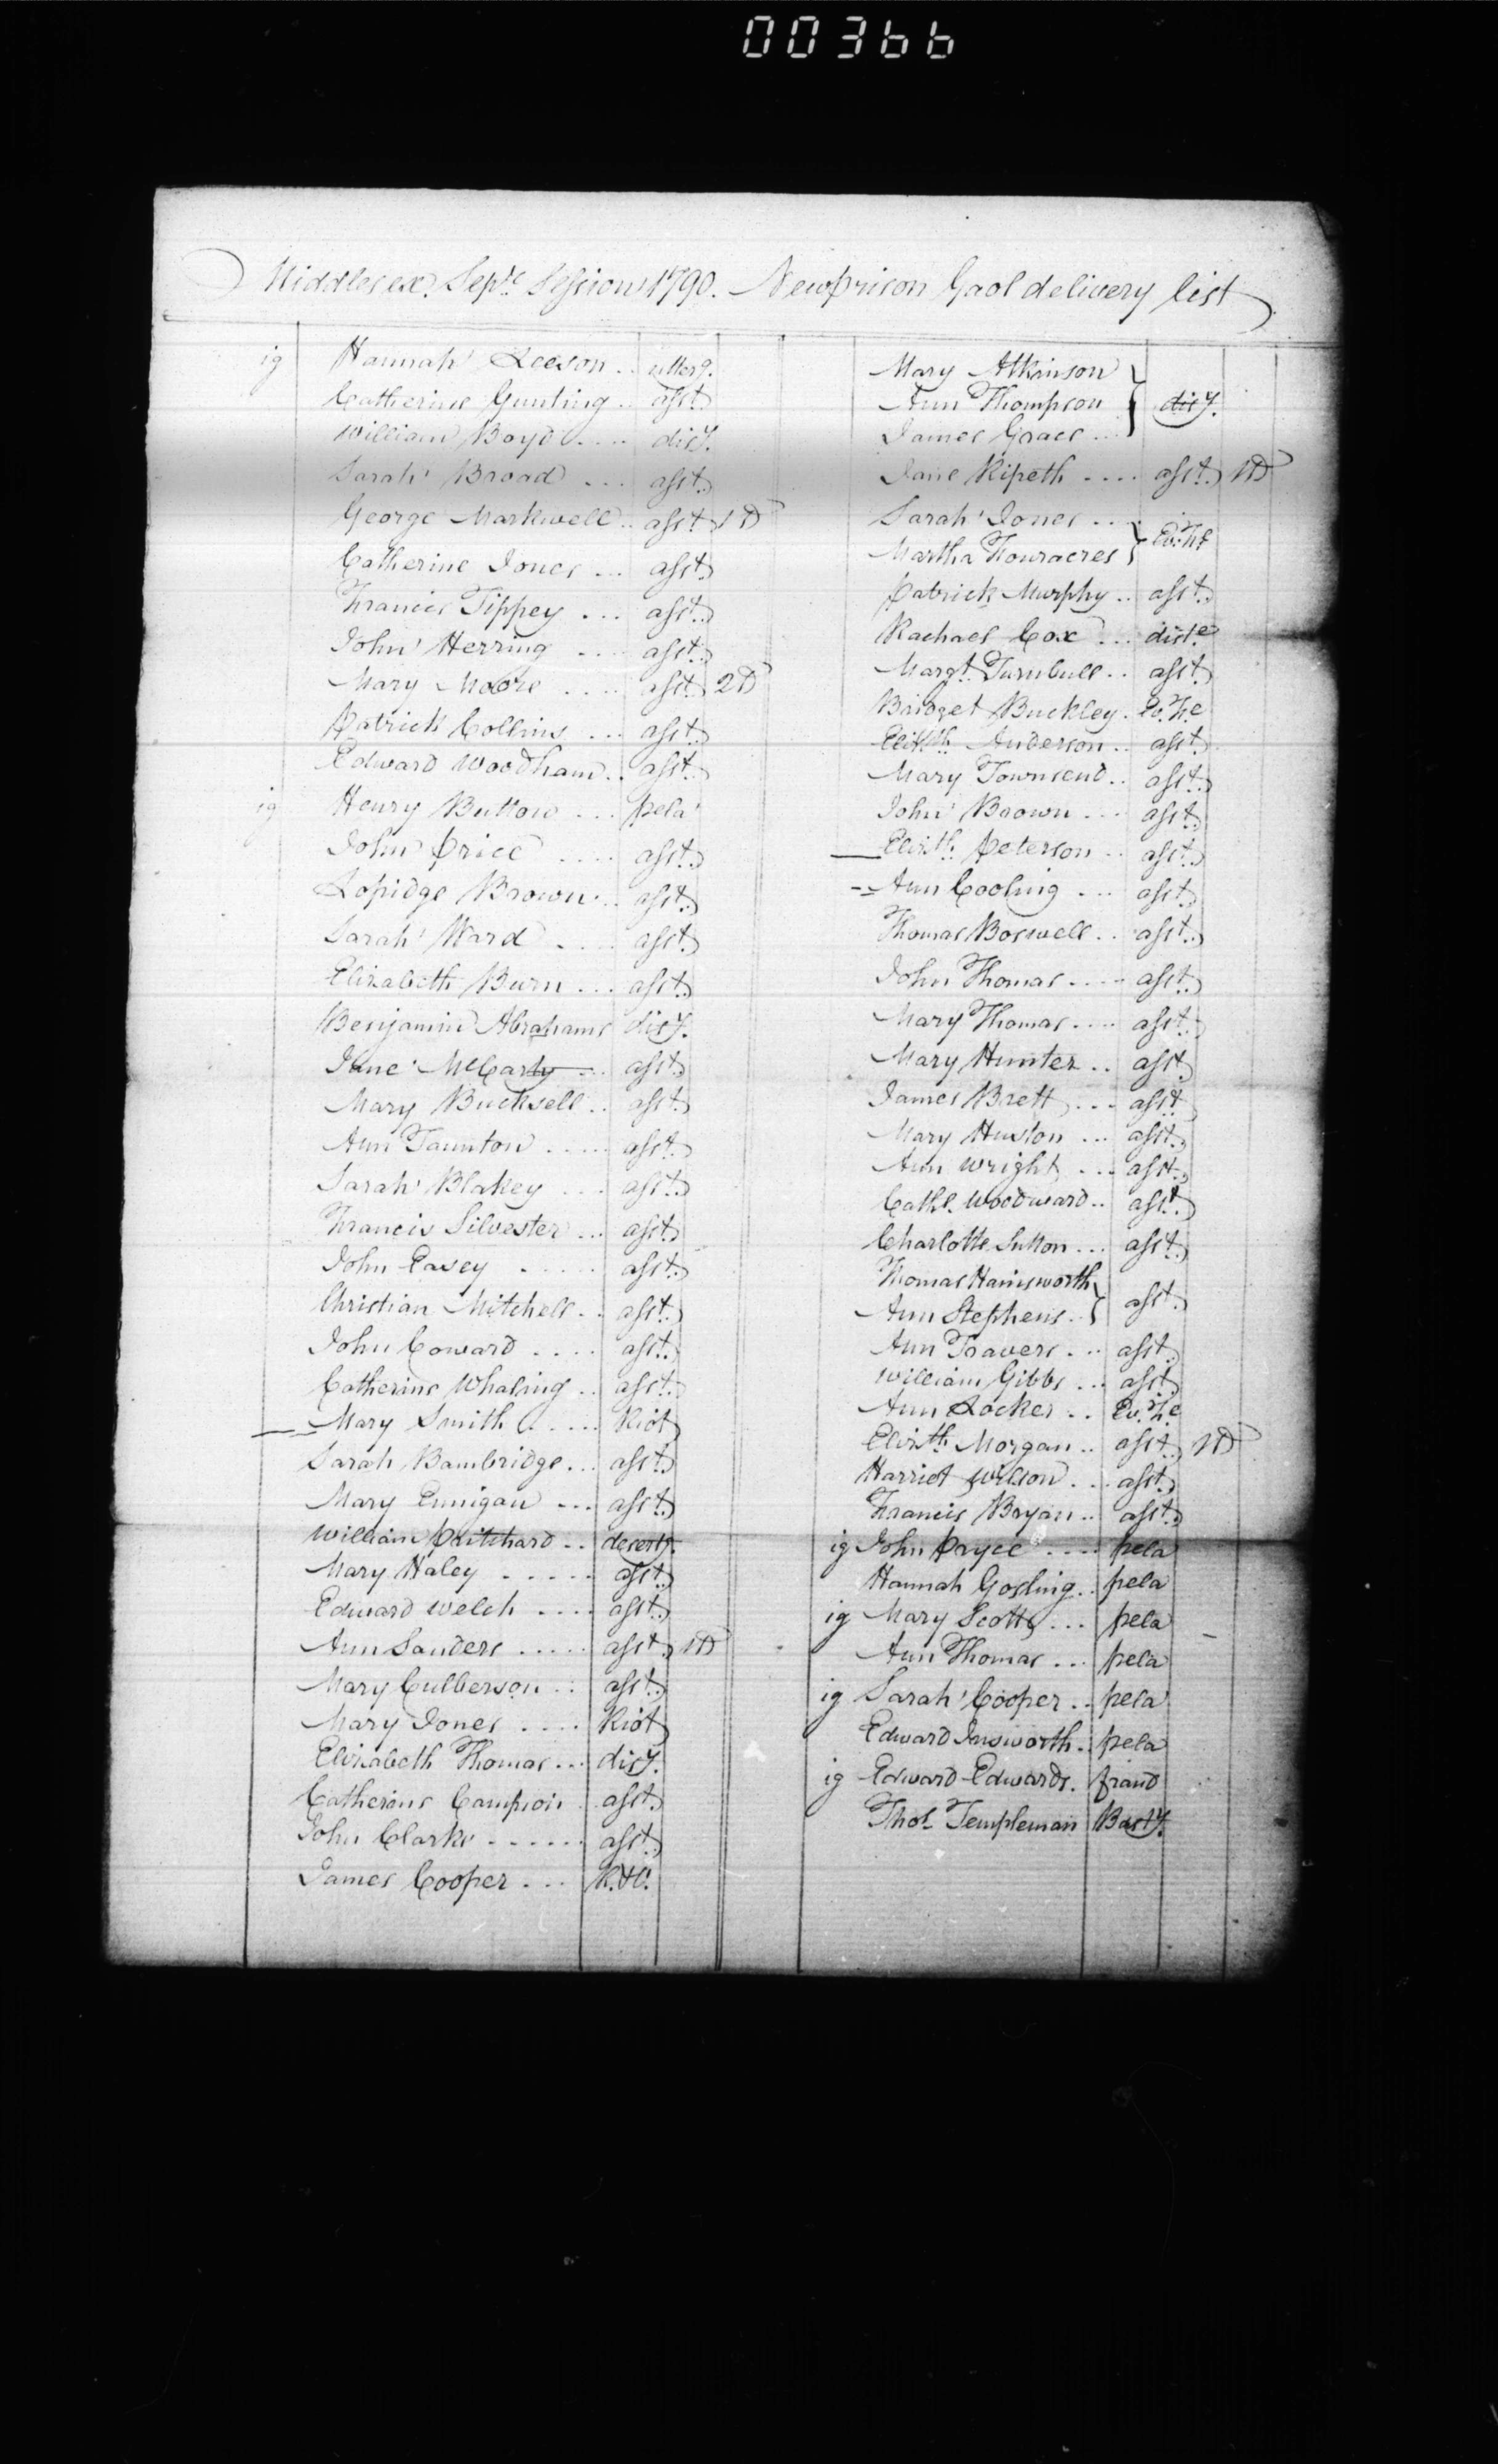 00366
Middlesex. Septr. Session 1790. New Prison Gaol delivery list
ig Hannah Leeson .. utterg.
Catherine Gunting .. asst.
William Boyd .... disy.
Sarah Broad ... asst.
George Markwell .. asst. 1 D
Catherine Jones ... asst.
Francis Tippey ... asst.
John Herring .... asst.
Mary Moore .... asst. 2 D
Patrick Collins ... asst.
Edward Woodham .. asst.
ig Henry Button ... pela
John Price .... asst.
Lopidge Brown .. asst.
Sarah Ward .... asst.
Elizabeth Burn ... asst.
Benjamin Abrahams disy.
Jane McCarty ... asst.
Mary Bucksell .. asst.
Ann Taunton ..... asst.
Sarah Blakey ... asst.
Francis Silvester ... asst.
John Easey ..... asst.
Christian Mitchell .. asst.
John Coward .... asst.
Catherine Whaling .. asst.
Mary Smith .... Riot
Sarah Bambridge ... asst.
Mary Ennigan ... asst.
William Pritchard .. desert.
Mary Haley ..... asst.
Edward Welch .... asst.
Ann Sanders ..... asst. 1 D
Mary Culberson .. asst.
Mary Jones .... Riot
Elizabeth Thomas ... disy.
Catherine Campion . asst.
John Clarke ...... asst.
James Cooper ... R.&V.
Mary Atkinson
Ann Thompson } disy.
James Graes ...
Jane Ripeth .... asst. 1 D
Sarah Jones ....
Martha Fouracres } Ev. Fe
Patrick Murphy .. asst.
Rachael Cox ... diste
Margt. Turnbull .. asst.
Bridget Buckley . Ev. Fe
Elizth. Anderson .. asst.
Mary Townsend .. asst.
John Brown ... asst.
Elizth. Peterson .. asst.
Ann Cooling ... asst.
Thomas Boswell .. asst.
John Thomas .... asst.
Mary Thomas .... asst.
Mary Hunter .. asst.
James Brett ... asst.
Mary Huston ... asst.
Ann Wright ... asst.
Cathe. Woodward .. asst.
Charlotte Sutton ... asst.
Thomas Hainsworth
Ann Stephens .. } asst.
Ann Travers ... asst.
William Gibbs ... asst.
Ann Locker .. Ev. Fe
Elizth. Morgan .. asst. 1 D
Harriot Wilson ... asst.
Francis Bryan .. asst.
ig John Payce .... pela
Hannah Gosling .. pela
ig Mary Scott ... pela
Ann Thomas ... pela
ig Sarah Cooper .. pela
Edward Insworth .. pela
ig Edward Edwards . fraud
Thos. Templeman Basty.